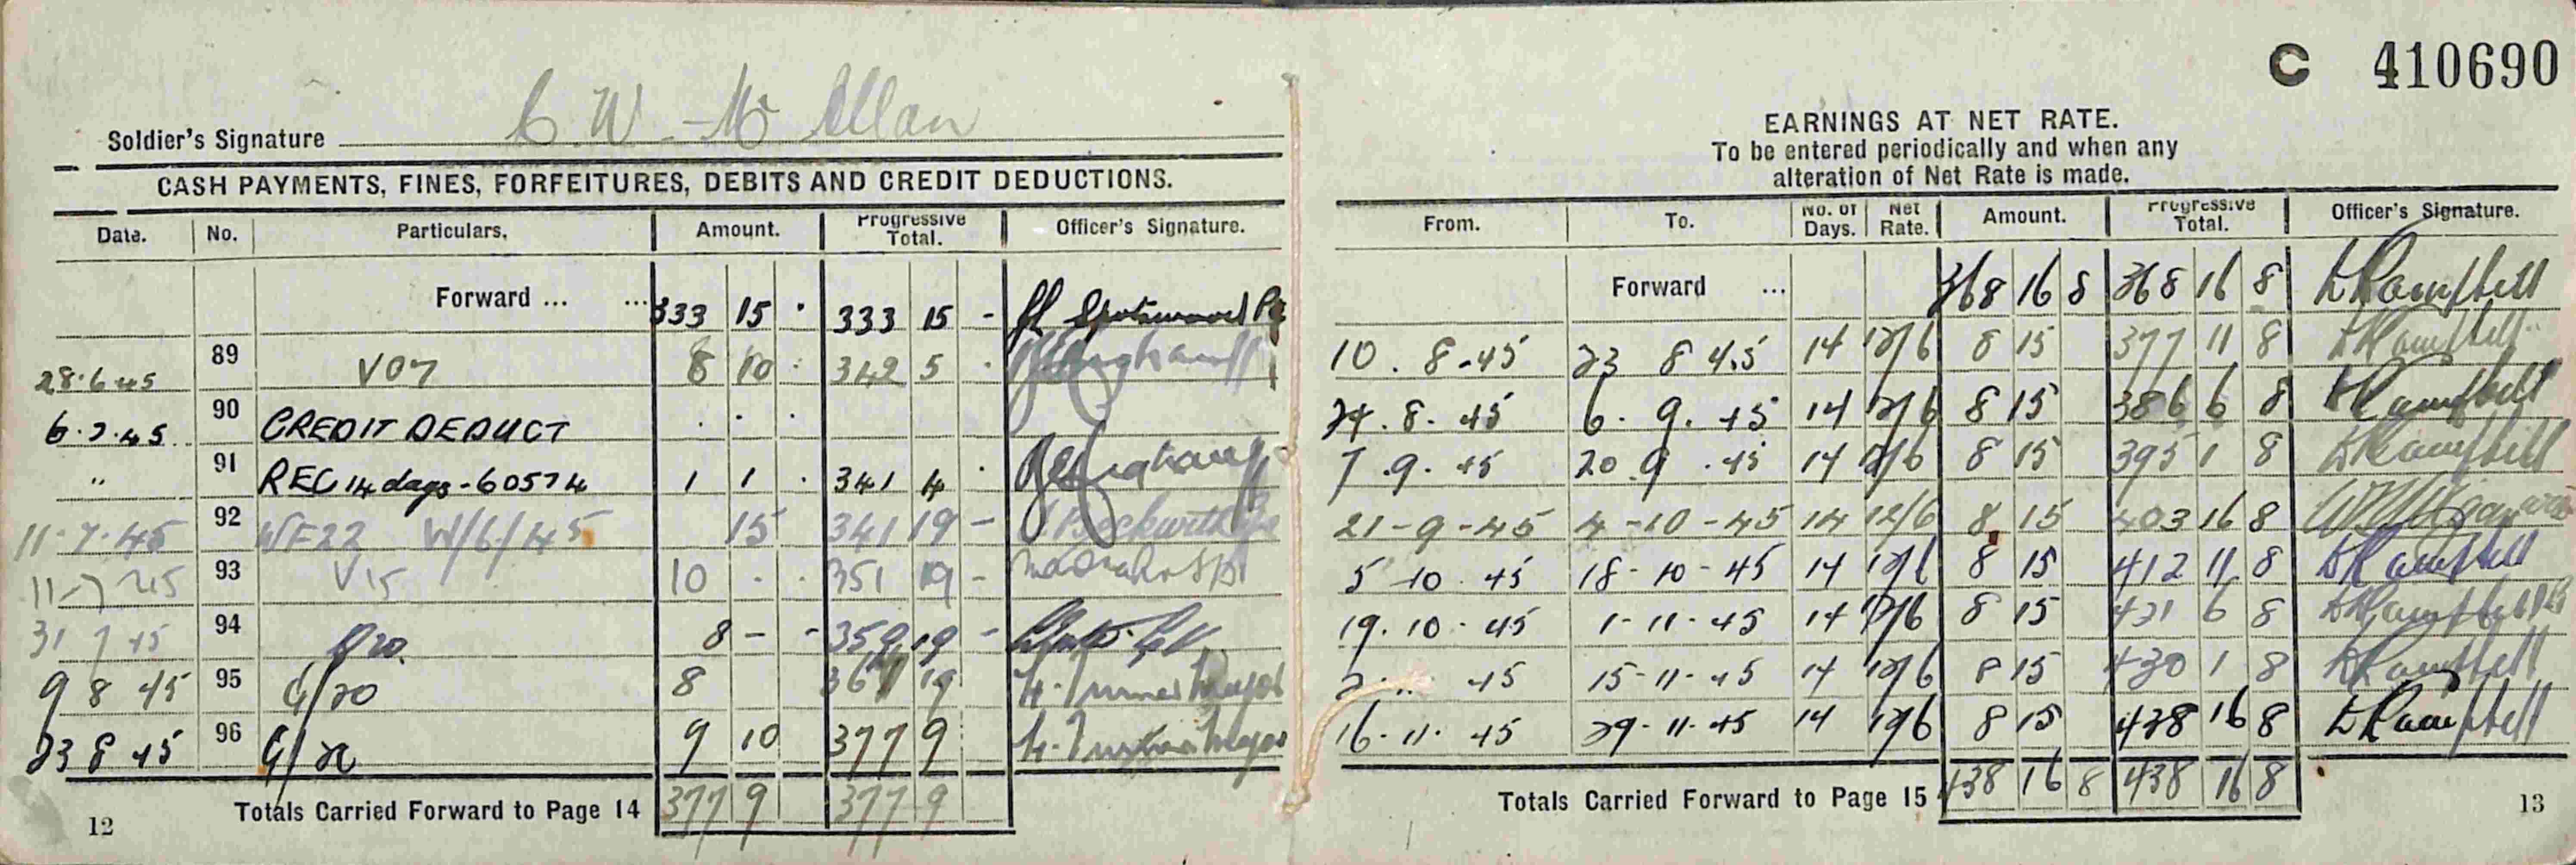 C 410690
Soldier's Signature C. W. Mc Allan
CASH PAYMENTS, FINES, FORFEITURES, DEBITS AND CREDIT DEDUCTIONS.
Date. No. Particulars. Amount. Progressive Total. Officer's Signature.
Forward ... ... 333 15 · 333 15 -
28·6·45 89 V07 8 10 · 342 5 ·
6·7·45 90 CREDIT DEDUCT · · ·
" 91 REC 14 days - 60574 1 1 · 341 4 ·
11·7·45 92 WE22 W/6/45 15 341 19 -
11-7-45 93 V15 10 · · 351 19 -
31 7 45 94 8 - - 359 19 -
9 8 45 95 G/20 8 367 19
23 8 45 96 G/20 9 10 377 9
Totals Carried Forward to Page 14 377 9 377 9
12
EARNINGS AT NET RATE.
To be entered periodically and when any
alteration of Net Rate is made.
From. To. No. of Days. Net Rate. Amount. Progressive Total. Officer's Signature.
Forward ... 368 16 8 368 16 8 Campbell
10 . 8 - 45 23 8 45 14 12/6 8 15 377 11 8 Campbell
24 . 8 - 45 6 - 9 . 45 14 12/6 8 15 386 6 8 Campbell
7 . 9 . 45 20 9 . 45 14 12/6 8 15 395 1 8 Campbell
21 - 9 - 45 4 - 10 - 45 14 12/6 8 15 403 16 8
5 10 . 45 18 - 10 - 45 14 12/6 8 15 412 11 8 Campbell
19 . 10 . 45 1 - 11 - 45 14 12/6 8 15 421 6 8 Campbell
2 45 15 - 11 - 45 14 12/6 8 15 430 1 8 Campbell
16 . 11 . 45 29 - 11 - 45 14 12/6 8 15 438 16 8 Campbell
Totals Carried Forward to Page 15 438 16 8 438 16 8
13